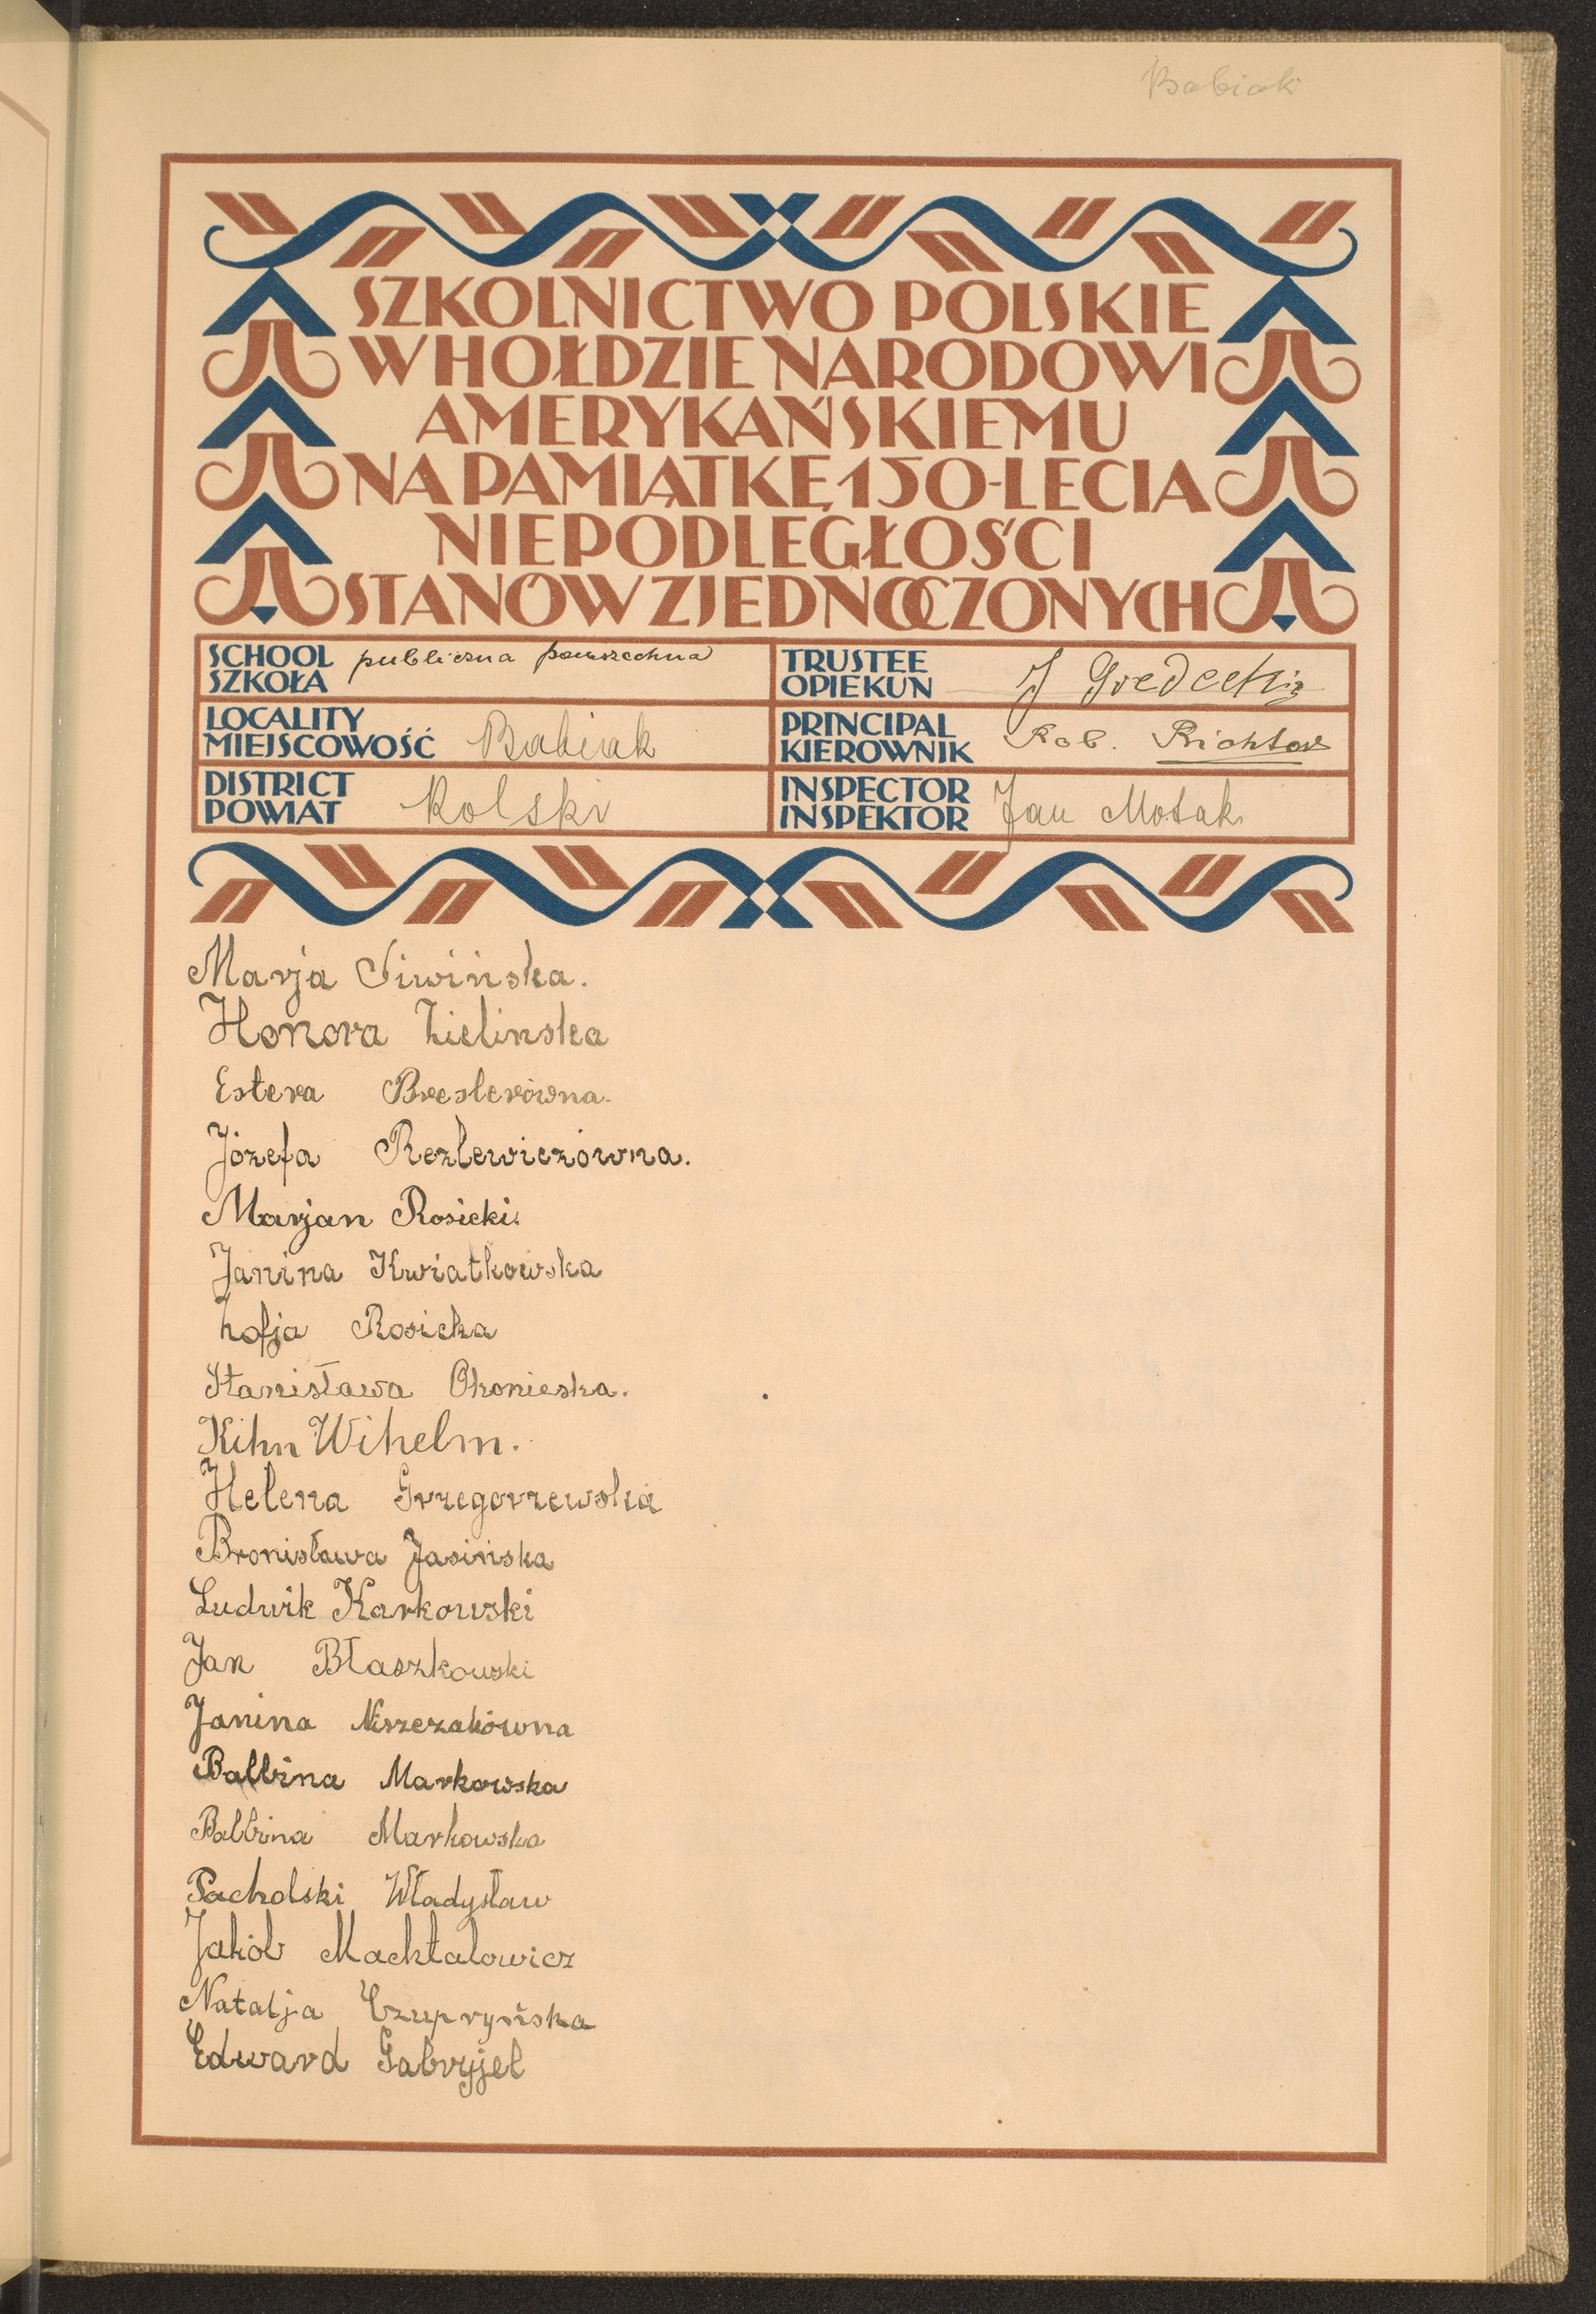 Babiak
SZKOLNICTWO POLSKIE
W HOŁDZIE NARODOWI
AMERYKAŃSKIEMU
NA PAMIĄTKĘ 150-LECIA
NIEPODLEGŁOŚCI
STANÓW ZJEDNOCZONYCH
SCHOOL
SZKOŁA publiczna powszechna
TRUSTEE
OPIEKUN J
LOCALITY
MIEJSCOWOŚĆ Babiak
PRINCIPAL
KIEROWNIK Rob. Richter
DISTRICT
POWIAT Kolski
INSPECTOR
INSPEKTOR Jan Motak
Marja Siwińska.
Honora Zielinska
Estera Breslerówna.
Józefa Rezlewiczówna.
Marjan Rosicki.
Janina Kwiatkowska
Zofja Rosicka
Stanisława Okonieska.
Kihn Wihelm.
Helena Grzegorzewska
Bronisława Jasińska
Ludwik Karkowski
Jan Błaszkowski
Janina
Balbina Markowska
Balbina Markowska
Pacholski Władysław
Jakób Machtalowicz
Natalja Czupryńska
Edward Gabryjel